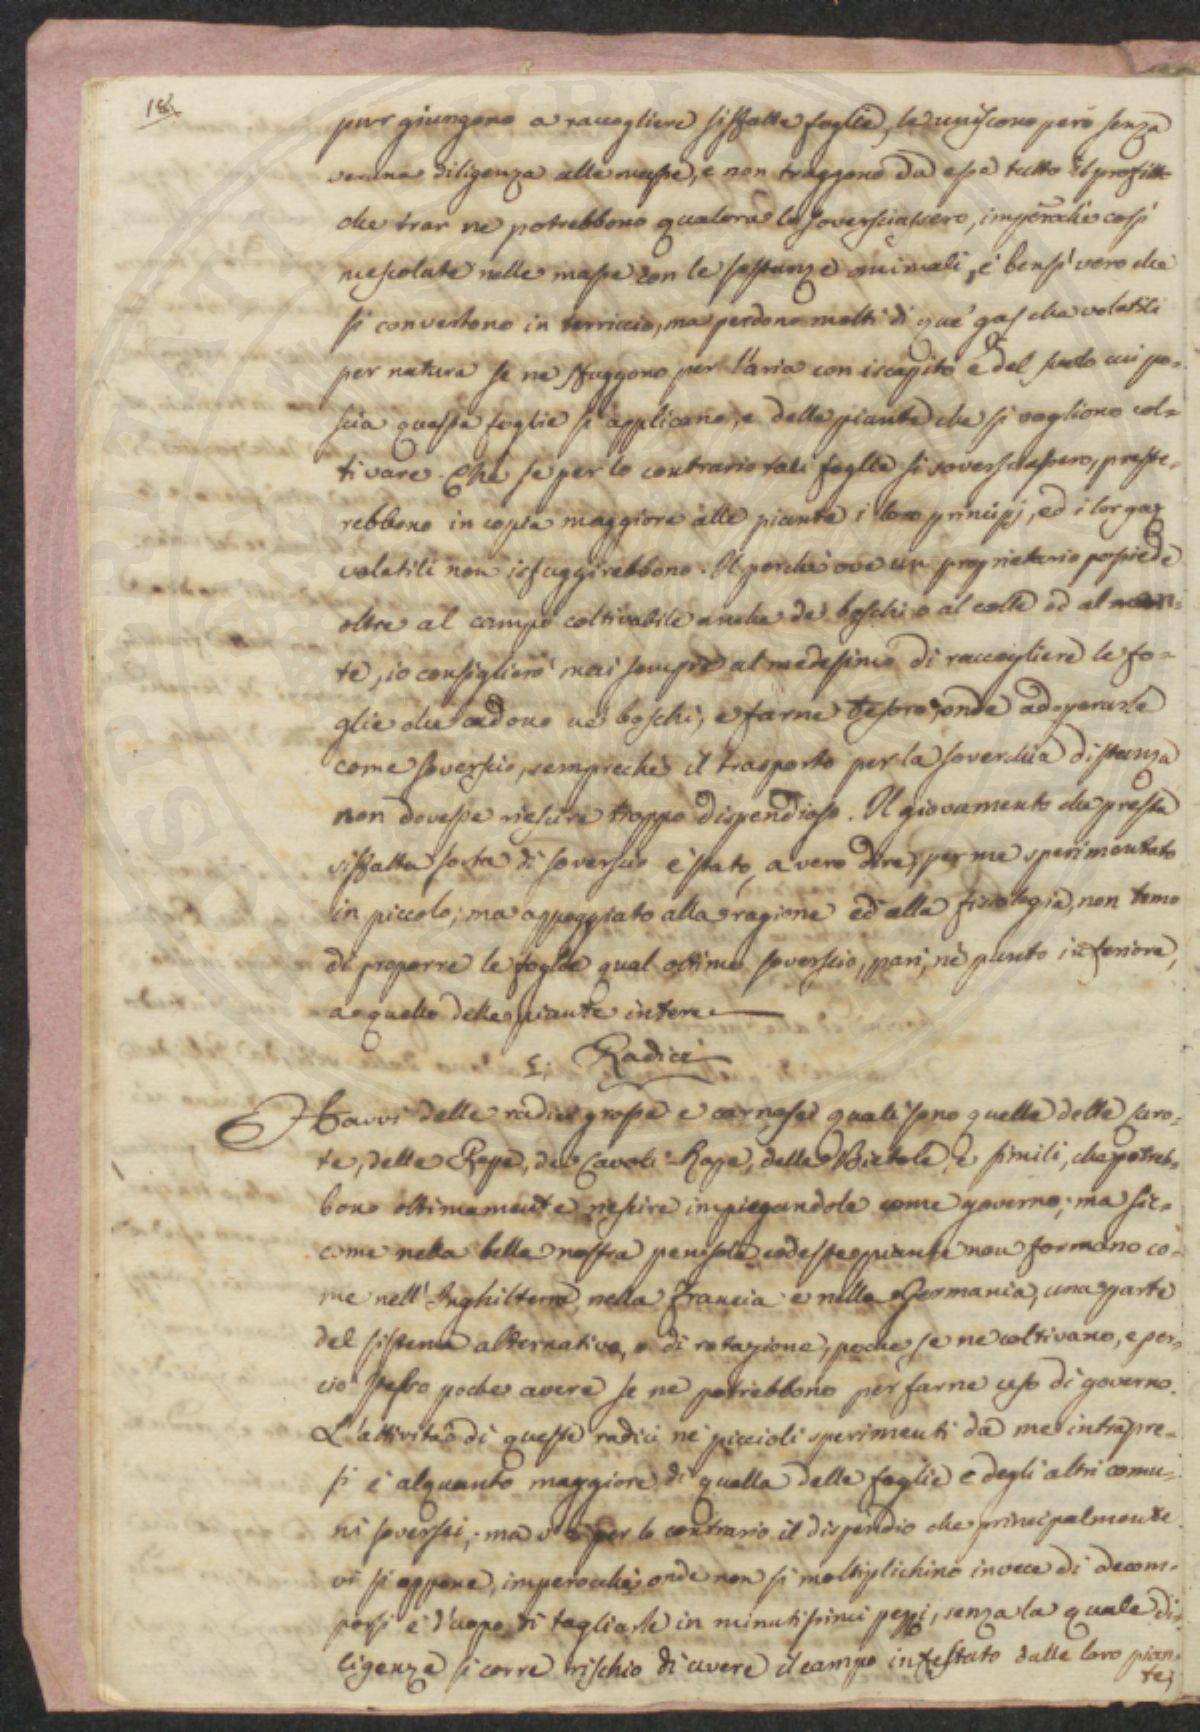 18
pur giungono a raccogliere siffatte foglie, le uniscono però senza
veruna diligenza alle masse, e non traggono da esse tutto il profitto
che trar ne potrebbono qualora le soversciassero, imperocchè così
mescolate nelle masse con le sostanze animali, è bensì vero che
si convertono in terriccio, ma perdono molti di que' gas che volatili
per natura se ne sfuggono per l'aria con iscapito e del suolo cui po-
scia queste foglie si applicano, e delle piante che si vogliono col-
tivare. Che se per lo contrario tali foglie si soversciassero, preste-
rebbono in copia maggiore alle piante i loro principj, ed i lor gaz
volatili non isfuggirebbono. Il perchè ove un proprietario possiede
oltre al campo coltivabile anche de' boschi o al colle od al mon-
te, io consiglierò mai sempre al medesimo di raccogliere le fo-
glie che cadono ne' boschi, e farne tesoro, onde adoperarle
come soverscio, sempreché il trasporto per la soverchia distanza
non dovesse riescire troppo dispendioso. Il giovamento che presta
siffatta sorta di soverscio è stato, a vero dire, per me sperimentato
in piccolo; ma appoggiato alla ragione ed alla fisiologia, non temo
di proporre le foglie qual ottimo soverscio, pari, nè punto inferiore,
a quello delle piante intere
Radici
Havvi delle radici grosse e carnose quali sono quelle delle caro-
te, delle Rape, dei Cavoli-Rape, delle Bietole, e simili, che potreb-
bono ottimamente riescire impiegandole come governo; ma sic-
come nella bella nostra penisola codeste piante non formano co-
me nell'Inghilterra, nella Francia e nella Germania, una parte
del sistema alternativo, o di rotazione, poche se ne coltivano, e per-
ciò stesso poche avere se ne potrebbono per farne uso di governo.
L'attività di queste radici ne' piccioli sperimenti da me intrapre-
si è alquanto maggiore di quella delle foglie e degli altri comu-
ni soversci; ma v'è per lo contrario il dispendio che principalmente
vi si oppone, imperocchè, onde non si moltiplichino invece di decom-
porsi è d'uopo di tagliarle in minutissimi pezzi, senza la quale di-
ligenza si corre rischio di avere il campo infestato dalle loro pian-
te,